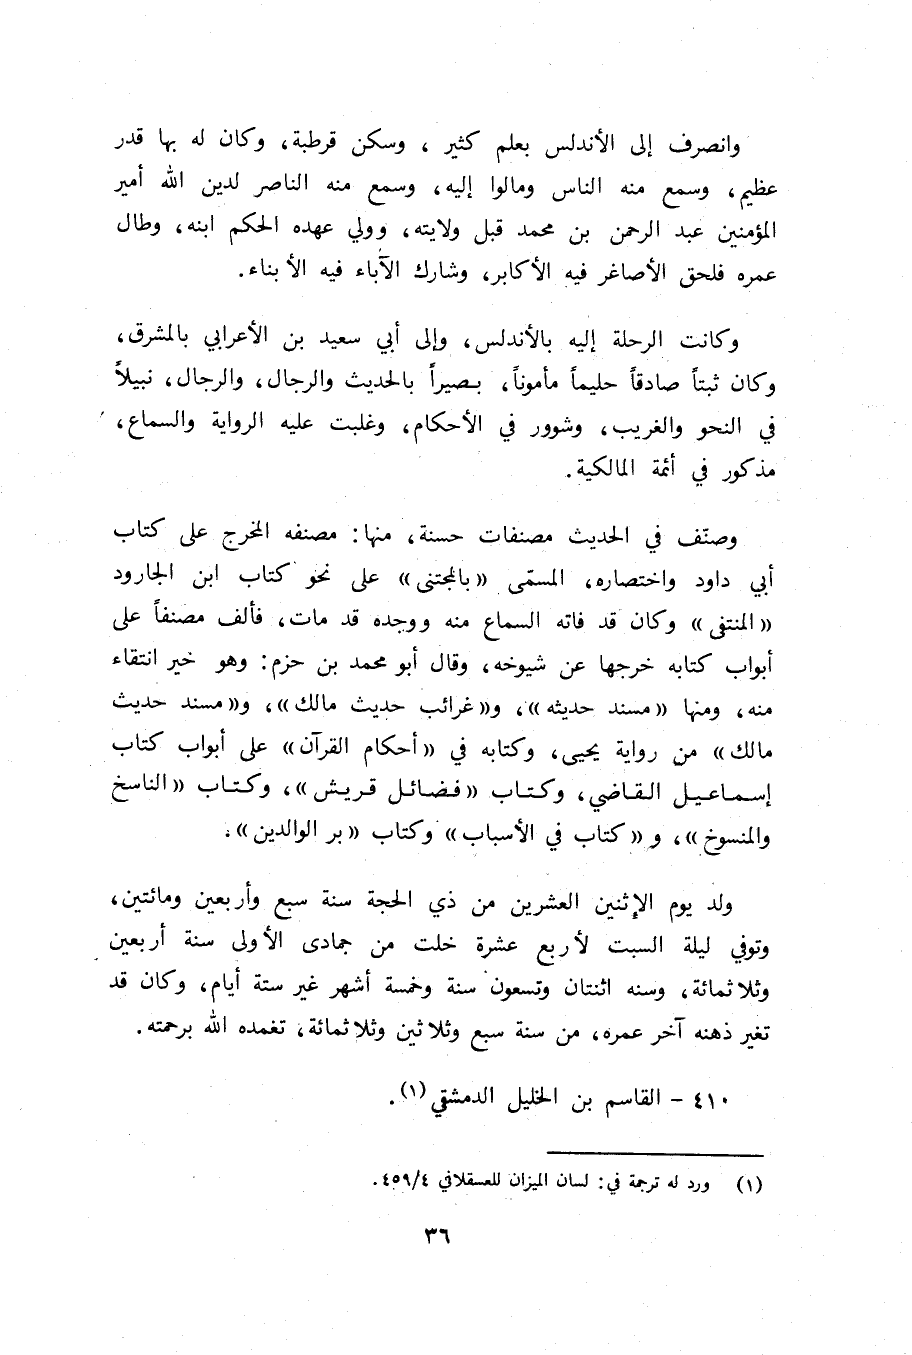 وانصرف إلى الأندلس بعلم كثير ، وسكن قرطبة، وكان له بها قدر
عظيم، وسمع منه الناس ومالوا إليه، وسمع منه الناصر لدين الله أمير
المؤمنين عبد الرحمن بن محمد قبل ولايته، وولي عهده الحكم ابنه، وطال
عمره فلحق الأصاغر فيه الأكابر، وشارك الآباء فيه الأبناء.
وكانت الرحلة إليه بالأندلس، وإلى أبي سعيد بن الأعرابي بالمشرق،
وكان ثبتاً صادقاً حليماً مأموناً، بصيراً بالحديث والرجال، والرجال، نبيلاً
في النحو والغريب، وشوور في الأحكام، وغلبت عليه الرواية والسماع،
مذكور في أئمة المالكية.
وصنّف في الحديث مصنفات حسنة، منها: مصنفه المخرج على كتاب
أبي داود واختصاره، المسمّى «بالمجتنى» على نحو كتاب ابن الجارود
«المنتقى» وكان قد فاته السماع منه ووجده قد مات، فألف مصنفاً على
أبواب كتابه خرجها عن شيوخه، وقال أبو محمد بن حزم: وهو خير انتقاء
منه، ومنها «مسند حديثه»، و«غرائب حديث مالك»، و«مسند حديث
مالك» من رواية يحيى، وكتابه في «أحكام القرآن» على أبواب كتاب
إسماعيل القاضي، وكتاب «فضائل قريش»، وكتاب «الناسخ
والمنسوخ»، و «كتاب في الأسباب» وكتاب «بر الوالدين».
ولد يوم الإثنين العشرين من ذي الحجة سنة سبع وأربعين ومائتين،
وتوفي ليلة السبت لأربع عشرة خلت من جمادى الأولى سنة أربعين
وثلاثمائة، وسنه اثنتان وتسعون سنة وخمسة أشهر غير ستة أيام، وكان قد
تغير ذهنه آخر عمره، من سنة سبع وثلاثين وثلاثمائة، تغمده الله برحمته.
٤١٠ - القاسم بن الخليل الدمشقي(١).
(١) ورد له ترجمة في: لسان الميزان للعسقلاني ٤٥٩/٤.
٣٦